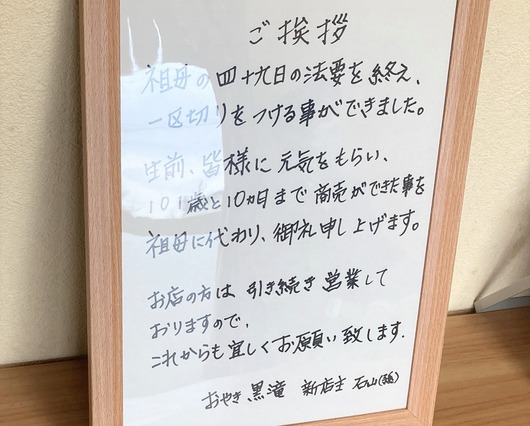 ご挨拶
祖母の四十九日の法要を終え、
一区切りをつける事ができました。
生前、皆様に元気をもらい、
101歳と10ヵ月まで商売ができた事を
祖母に代わり、御礼申し上げます。
お店の方は引き続き営業して
おりますので、
これからも宜しくお願い致します.
おやき 黒滝 新店主 石山(孫)